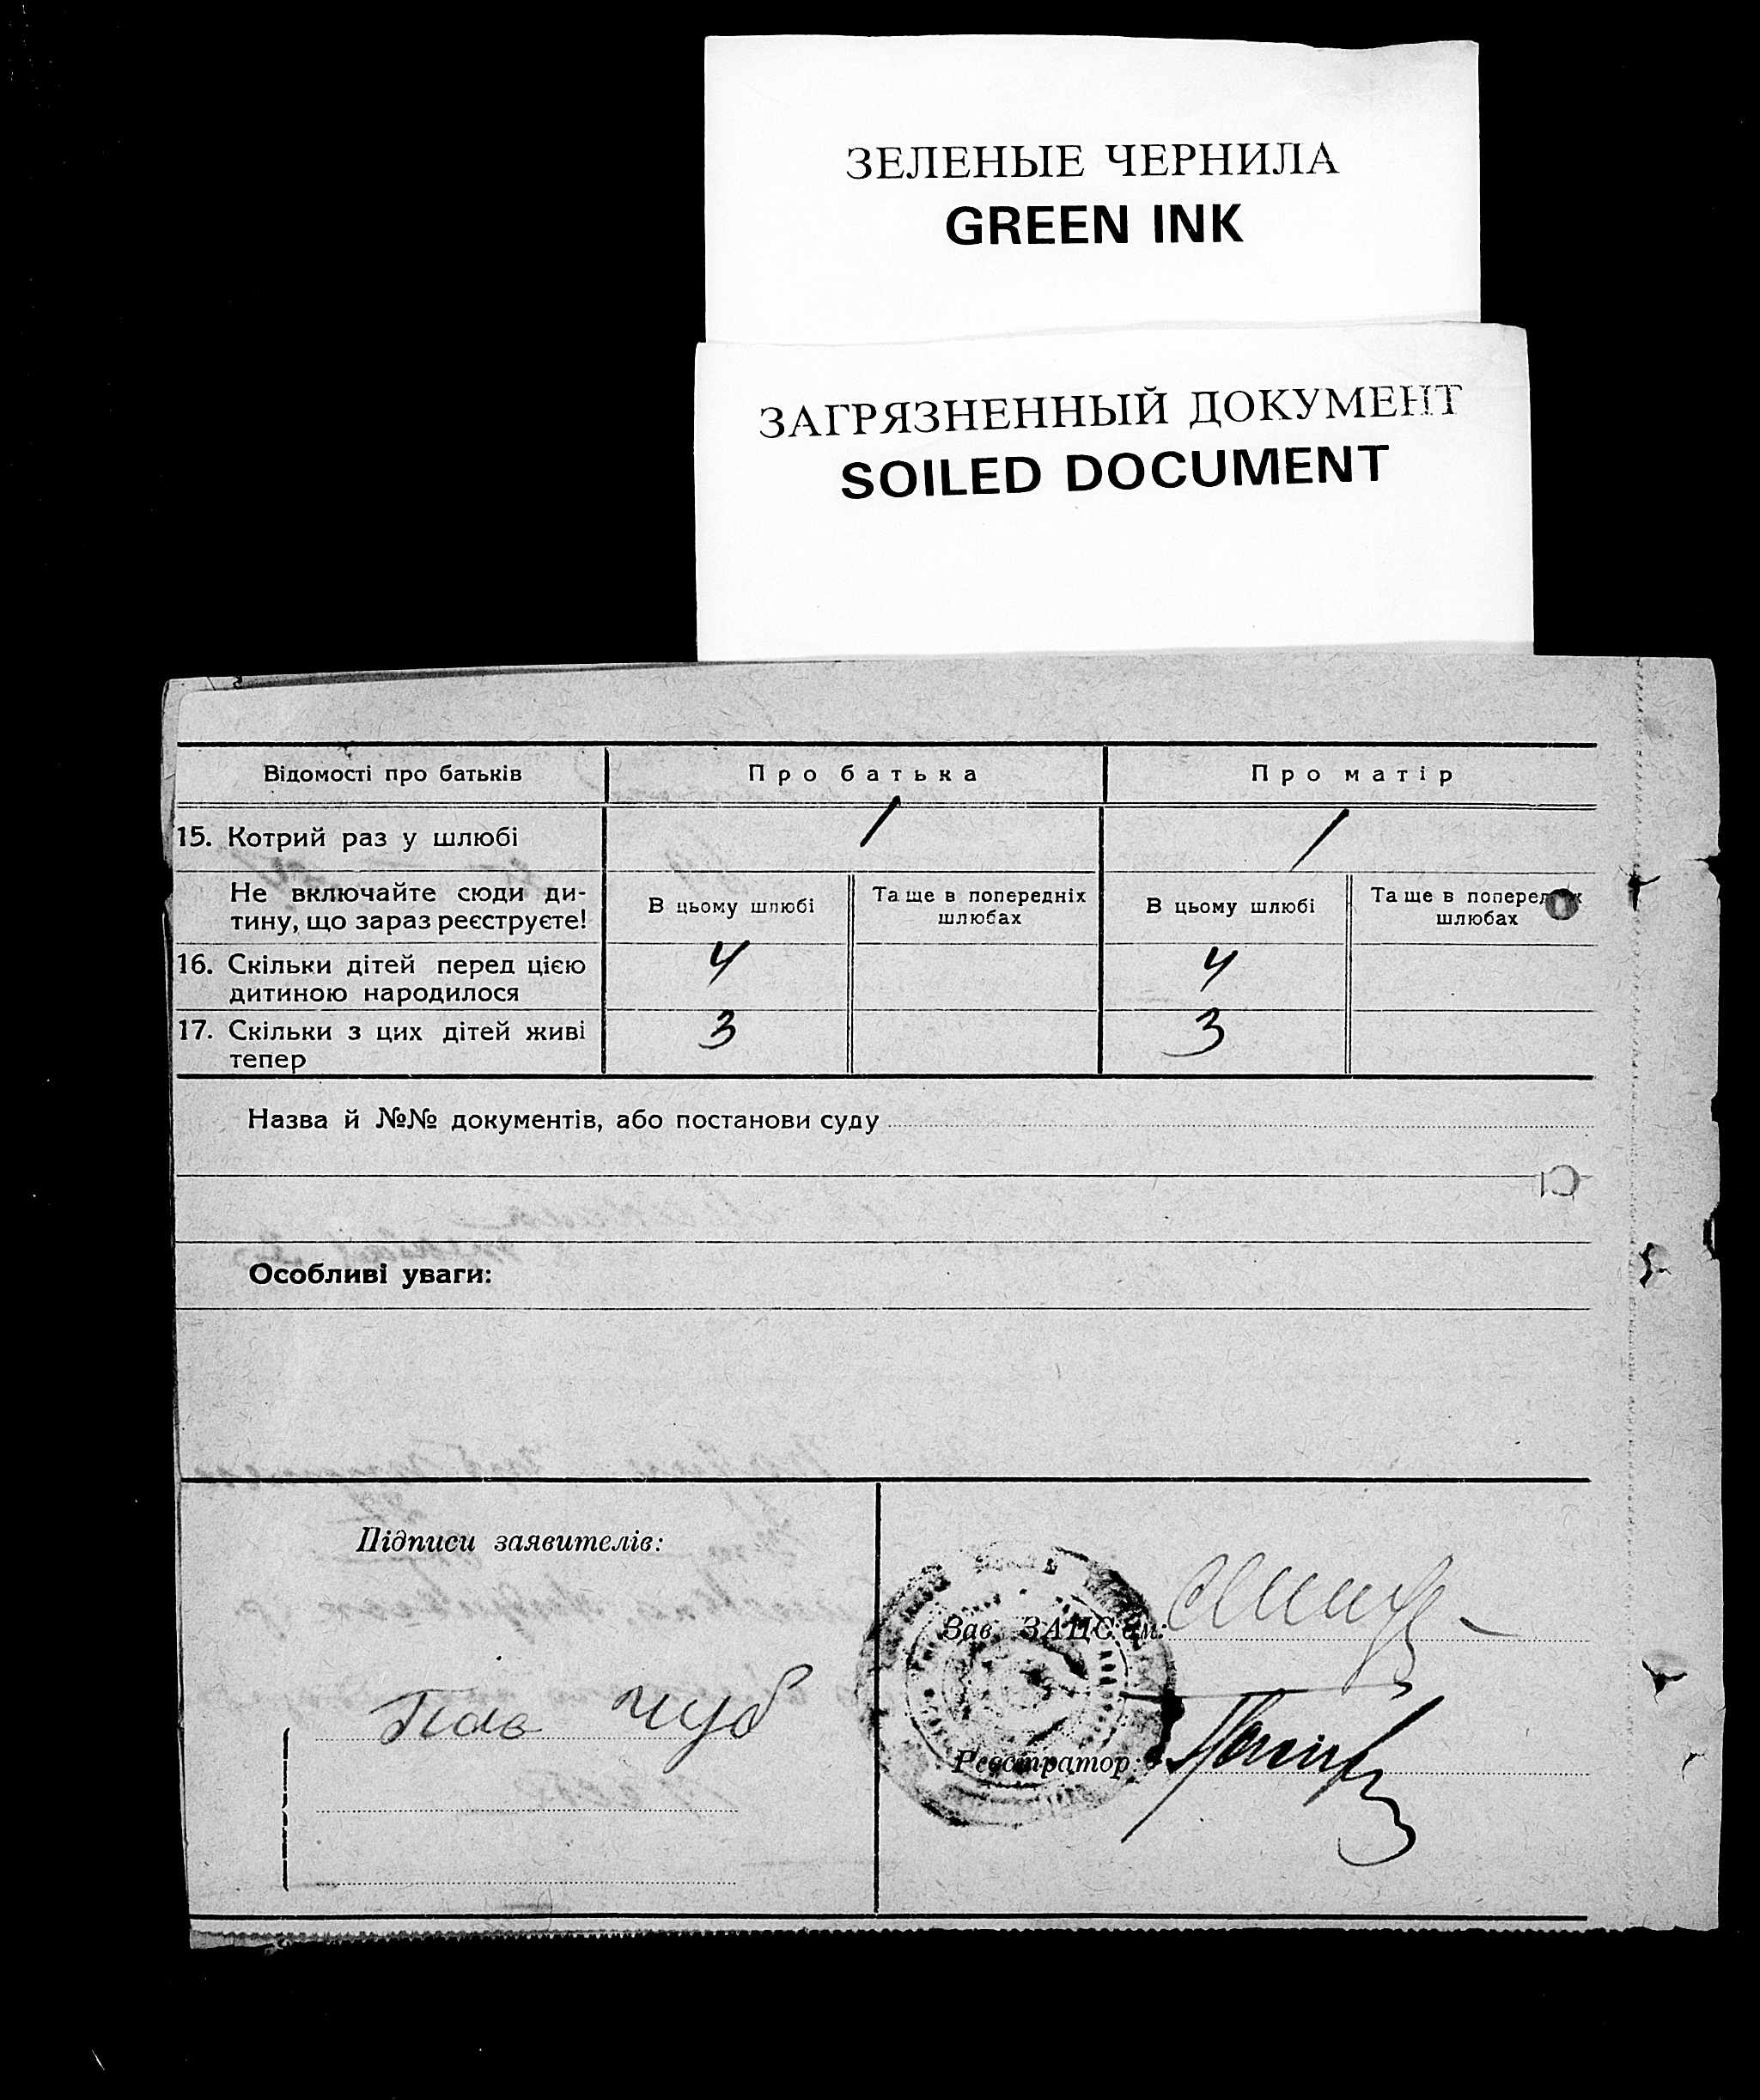 ЗЕЛЕНЫЕ ЧЕРНИЛА
GREEN INK
ЗАГРЯЗНЕННЫЙ ДОКУМЕНТ
SOILED DOCUMENT
Відомості про батьків Про батька Про матір
15. Котрий раз у шлюбі 1 1
Не включайте сюди ди-
тину, що зараз реєструєте!
В цьому шлюбі
Та ще в попередніх
шлюбах
В цьому шлюбі
Та ще в попередніх
шлюбах
16. Скільки дітей перед цією
дитиною народилося
4 4
17. Скільки з цих дітей живі
тепер
3 3
Назва й №№ документів, або постанови суду
Особливі уваги:
Підписи заявителів:
Зав. ЗАЦС'ом:
Чуб
Реєстратор: